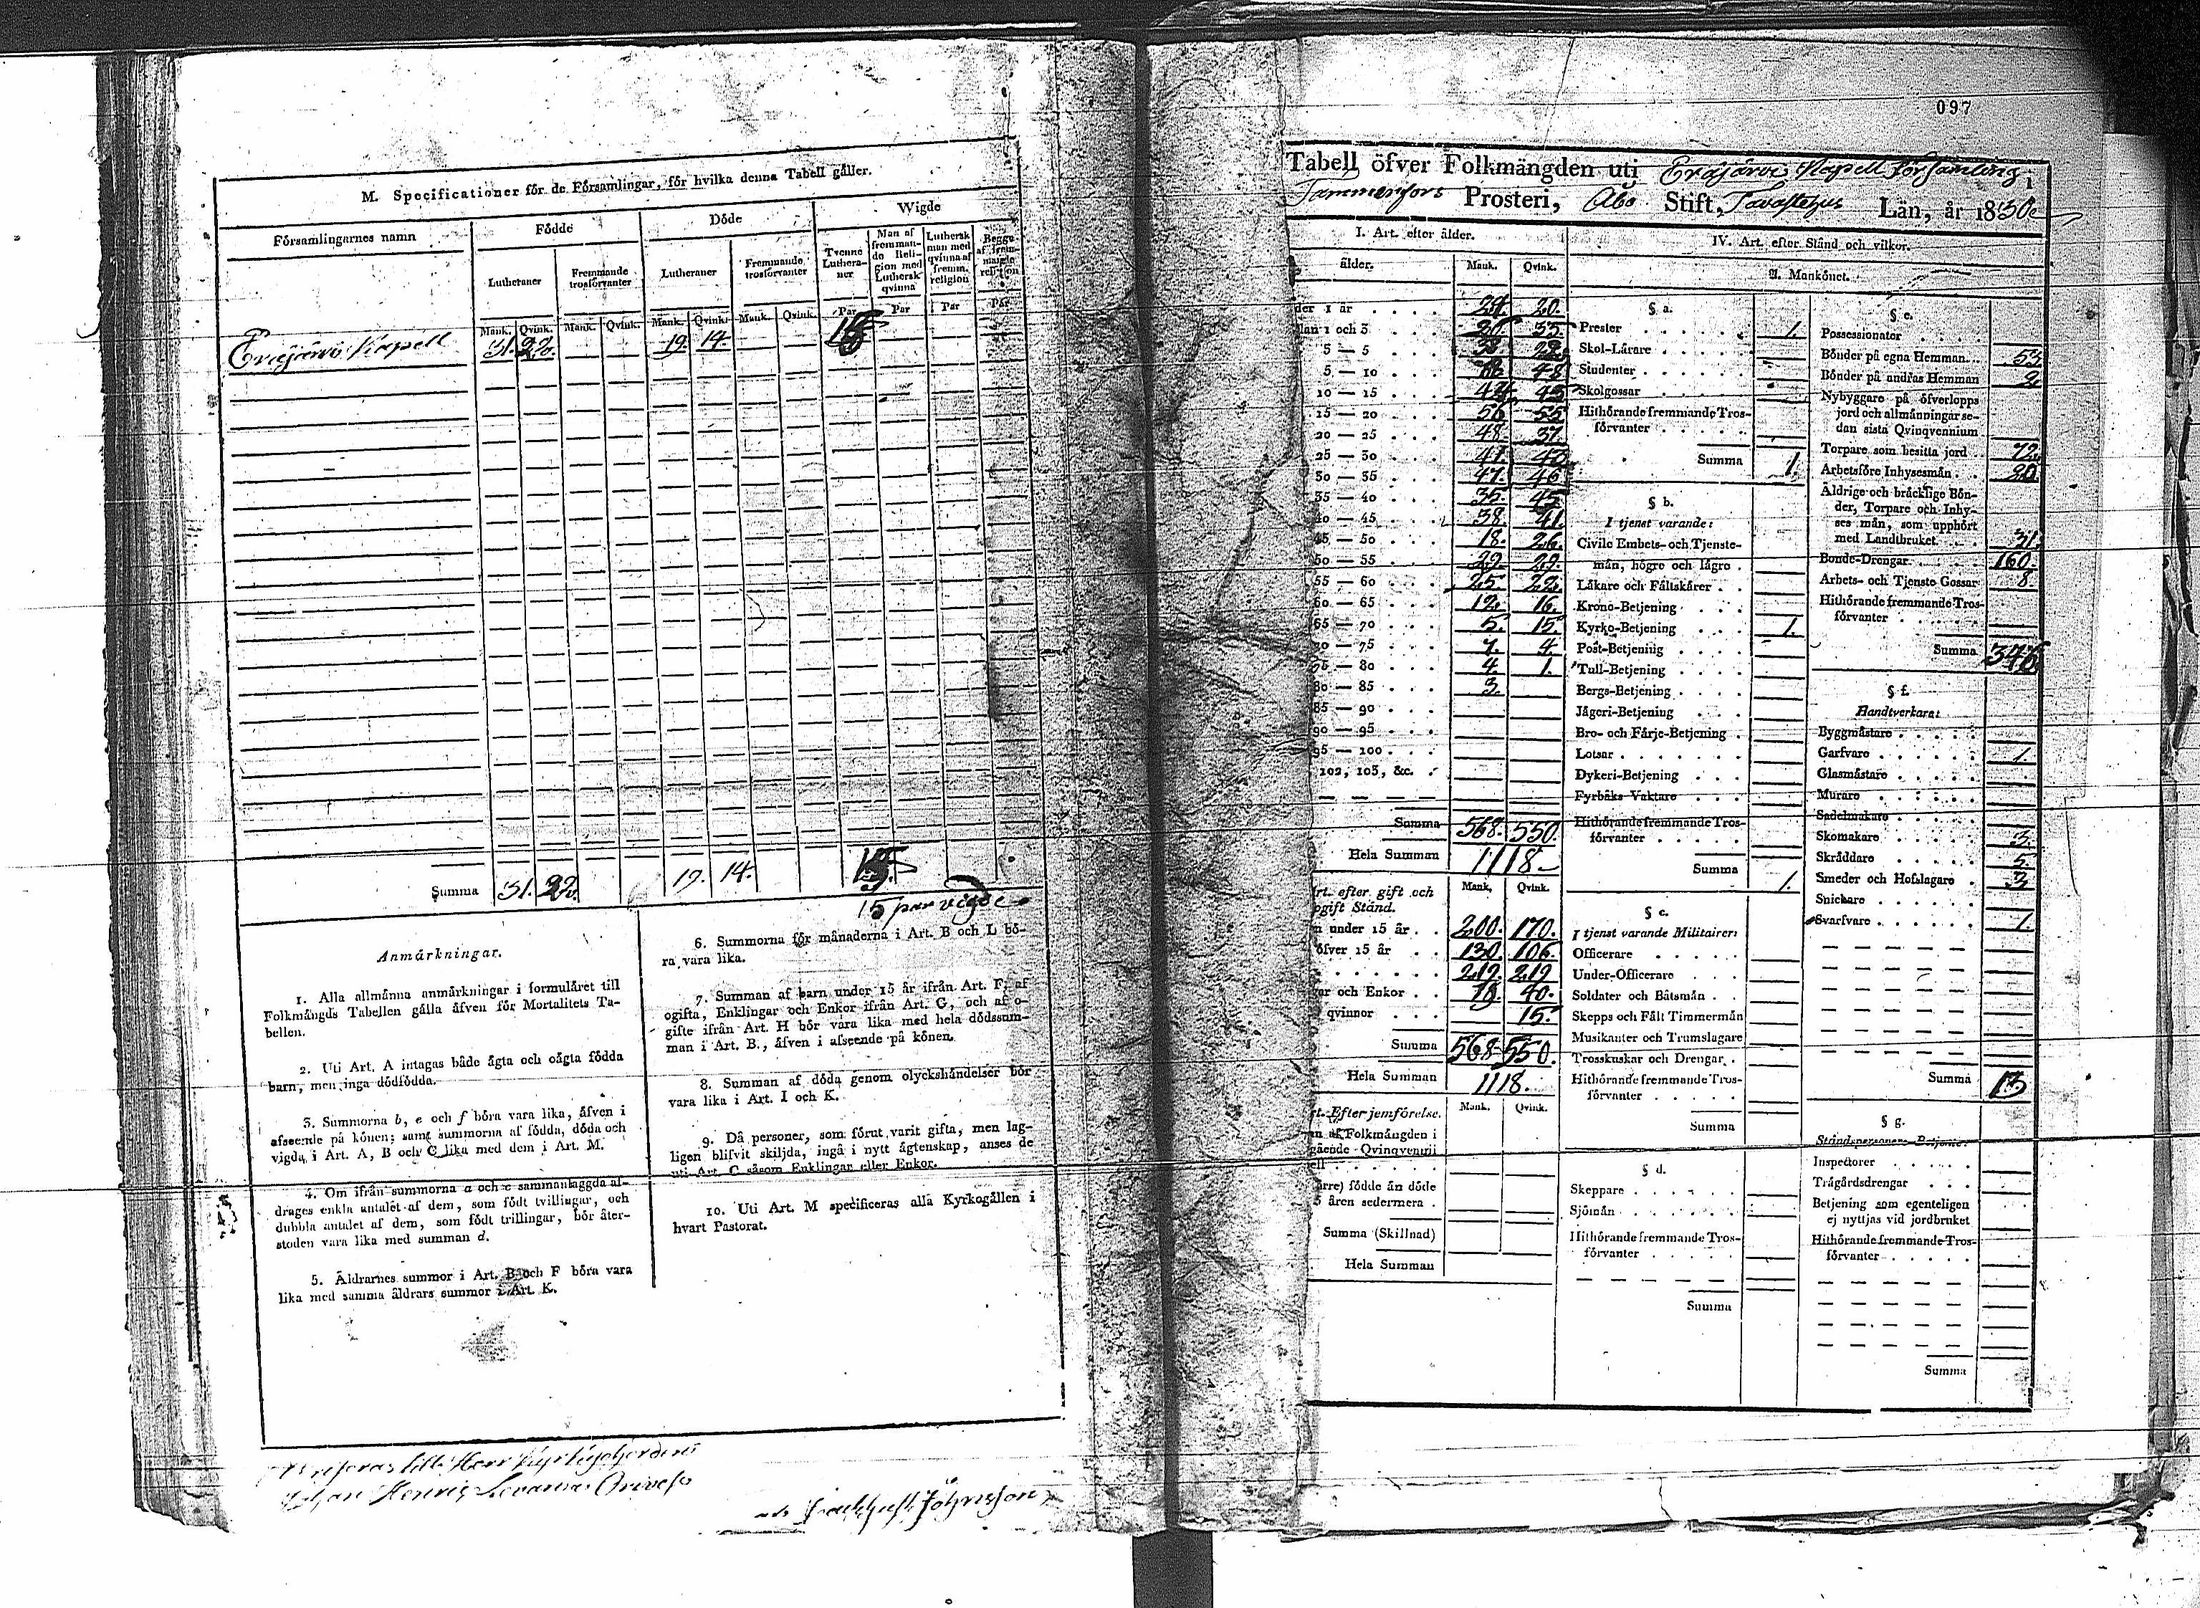 M. Specificationer för de Församlingar, för hvilka denna Tabell gäller.
Församlingarnes namn
Födde
Döde
Wigde
Lutheraner
Fremmande trosförvanter
Lutheraner
Fremmande trosförvanter
Tvenne Lutheraner
Man af fremmande Religion med Luthersk qvinna
Luthersk man med qvinna af fremm. religion
Begge af fremmande religion
Mank. Qvink. Mank. Qvink. Mank. Qvink. Mank. Qvink. Par Par Par Par
Eräjärvi Kapell 31. 22. 19. 14. 15
Summa 31. 22. 19. 14. 15
15 par vigde
Anmärkningar.
1. Alla allmänna anmärkningar i formuläret till
Folkmängds Tabellen gälla äfven för Mortalitets Ta-
bellen.
2. Uti Art. A intagas både ägta och oägta födda
barn, men inga dödfödda.
3. Summorna b, e och f böra vara lika, äfven i
afseende på könen; samt summorna af födda, döda och
vigda i Art. A, B och C lika med dem i Art. M.
4. Om ifrån summorna a och c sammanlaggda af-
drages enkla antalet af dem, som födt tvillingar, och
dubbla antalet af dem, som födt trillingar, bör åter-
stoden vara lika med summan d.
5. Äldrarnes summor i Art. B och F böra vara
lika med samma äldrars summor i Art. K.
6. Summorna för månaderna i Art. B och L bö-
ra vara lika.
7. Summan af barn under 15 år ifrån Art. F, af
ogifta, Enklingar och Enkor ifrån Art. G, och af o-
gifte ifrån Art. H bör vara lika med hela dödssum-
man i Art. B., äfven i afseende på könen.
8. Summan af döda genom olyckshändelser bör
vara lika i Art. I och K.
9. Då personer, som förut varit gifta, men lag-
ligen blifvit skiljda, ingå i nytt ägtenskap, anses de
uti Art. C såsom Enklingar eller Enkor.
10. Uti Art. M specificeras alla Kyrkogällen i
hvart Pastorat.
097
Tabell öfver Folkmängden uti Eräjärvi Kapell Församling i
Tammerfors Prosteri, Åbo Stift, Tavastehus Län, år 1830
I. Art. efter ålder.
ålder. Mank. Qvink.
der 1 år 20.
lan 1 och 3
3 — 5
5 — 10 48
10 — 15
15 — 20 56 55
20 — 25 48. 37.
25 — 30 41.
30 — 35 47. 46.
35 — 40 35. 45.
40 — 45 38. 41.
45 — 50 18. 26.
50 — 55 29. 29.
55 — 60 25. 22.
60 — 65 12. 16.
65 — 70 5. 15.
70 — 75 7. 4.
75 — 80 4. 1.
80 — 85 3.
85 — 90
90 — 95
95 — 100
102, 103, &c.
Summa 568. 550.
Hela Summan 1118.
Art. efter gift och
ogift Stånd. Mank. Qvink.
under 15 år 200. 170.
öfver 15 år 130. 106.
219 219
och Enkor 19. 40.
qvinnor 15.
Summa 568 550.
Hela Summan 1118.
Efter jemförelse. Mank. Qvink.
af Folkmängden i
gående Qvinqvennii
ell
arre) födde än döde
5 åren sedermera
Summa (Skillnad)
Hela Summan
IV. Art. efter Stånd och vilkor.
A. Mankönet.
§ a.
Prester 1.
Skol-Lärare
Studenter
Skolgossar
Hithörande fremmande Tros-
förvanter
Summa 1.
§ b.
I tjenst varande:
Civile Embets- och Tjenste-
män, högre och lägre
Läkare och Fältskärer
Krono-Betjening
Kyrko-Betjening 1.
Post-Betjening
Tull-Betjening
Bergs-Betjening
Jägeri-Betjening
Bro- och Färje-Betjening
Lotsar
Dykeri-Betjening
Fyrbåks Vaktare
Hithörande fremmande Tros-
förvanter
Summa 1.
§ c.
I tjenst varande Militairer:
Officerare
Under-Officerare
Soldater och Båtsmän
Skepps och Fält Timmermän
Musikanter och Trumslagare
Trosskuskar och Drengar
Hithörande fremmande Tros-
förvanter
Summa
§ d.
Skeppare
Sjömän
Hithörande fremmande Tros-
förvanter
Summa
§ e.
Possessionater
Bönder på egna Hemman 53.
Bönder på andras Hemman 2.
Nybyggare på öfverlopps
jord och allmänningar se-
dan sista Qvinqvennium
Torpare som besitta jord 72.
Arbetsföre Inhysesmän 20.
Äldrige och bräcklige Bön-
der, Torpare och Inhy-
ses män, som upphört
med Landtbruket 31.
Bonde-Drengar 160.
Arbets- och Tjenste Gossar 8.
Hithörande fremmande Tros-
förvanter
Summa 346
§ f.
Handtverkare:
Byggmästare
Garfvare 1.
Glasmästare
Murare
Sadelmakare
Skomakare 3.
Skräddare 5.
Smeder och Hofslagare 3
Snickare
Svarfvare 1.
Summa 13
§ g.
Ståndspersoners Betjente:
Inspectorer
Trägårdsdrengar
Betjening som egenteligen
ej nyttjas vid jordbruket
Hithörande fremmande Tros-
förvanter
Summa